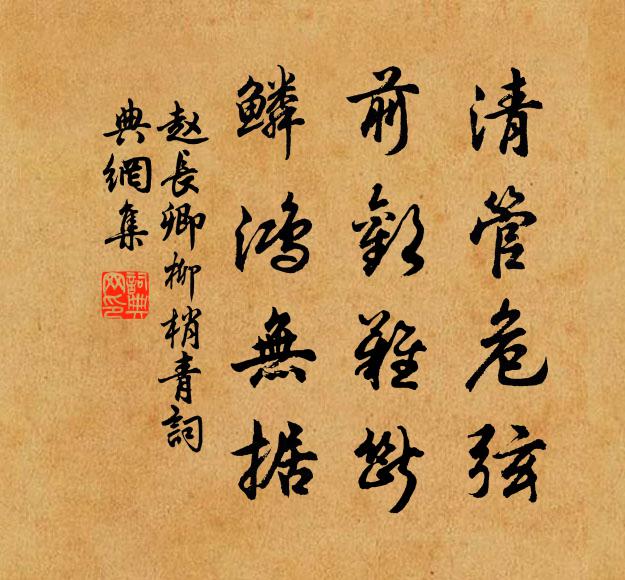 清管危弦
前歡難断
鱗鴻無据
赵長卿柳梢青詞
典網集
詞典網印